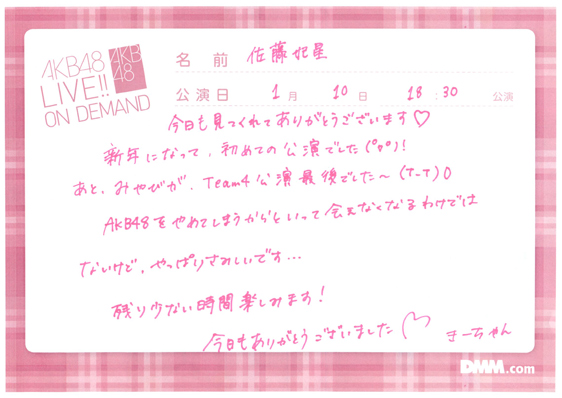 AKB48
LIVE!!
ON DEMAND
AKB
48
名前 佐藤妃星
公演日 1月 10日 18:30 公演
今日も見てくれてありがとうございます♡
新年になって、初めての公演でした(°o°)!
あと、みやびが、Team4公演最後でした〜(T-T)0
AKB48をやめてしまうからといって会えなくなるわけでは
ないけど、やっぱりさみしいです...
残り少ない時間楽しみます!
今日もありがとうございました♡ きーちゃん
DMM.com